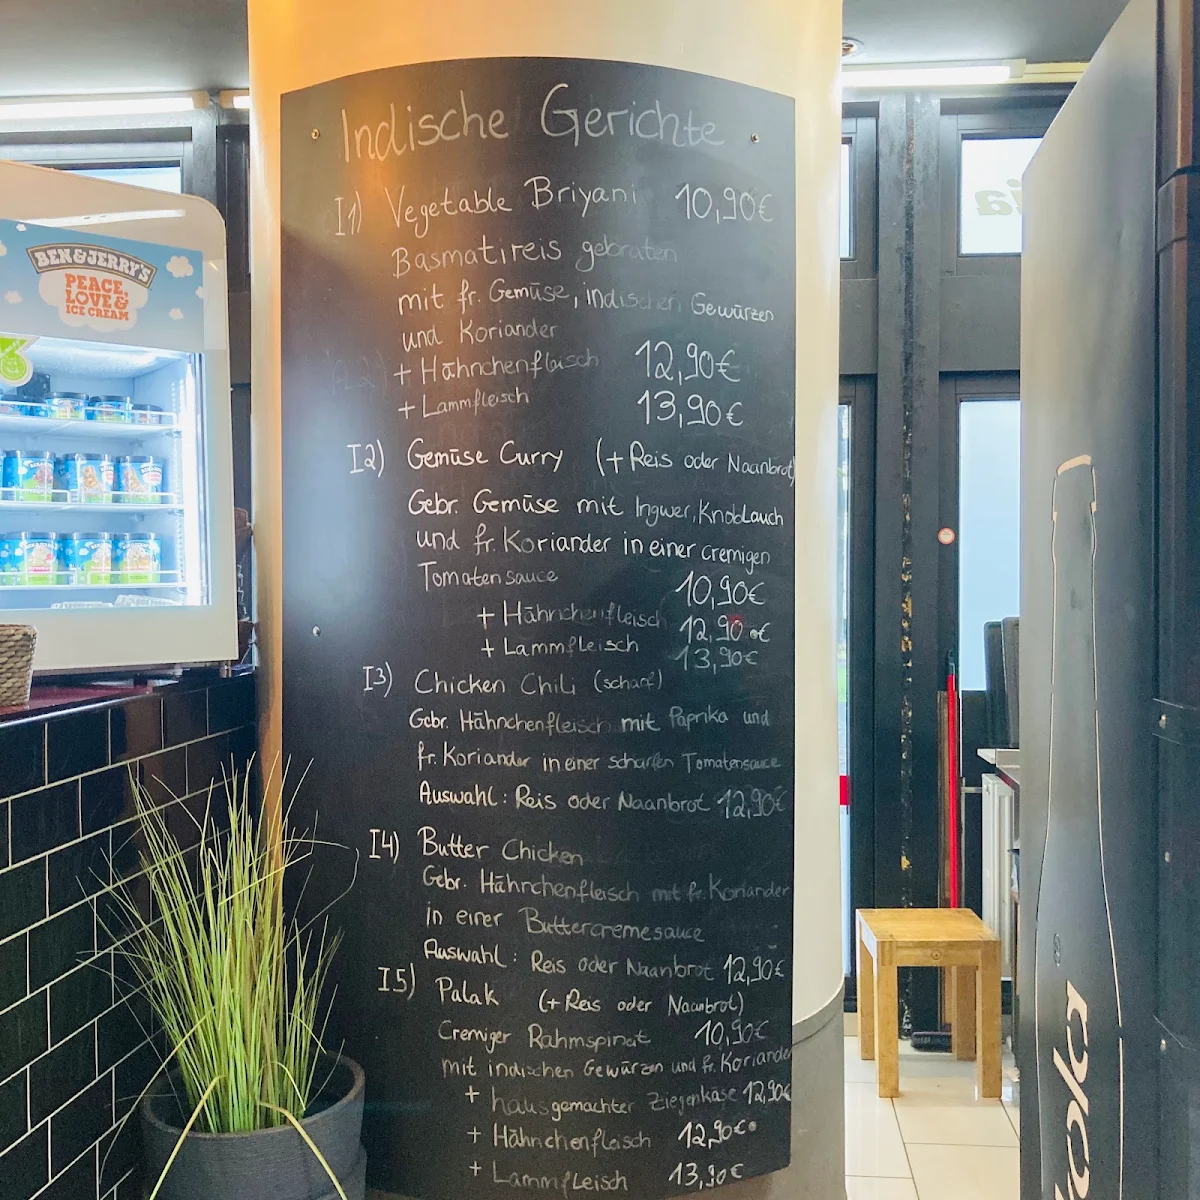 Indische Gerichte
I1) Vegetable Briyani 10,90€
Basmatireis gebraten
mit fr. Gemüse, indischen Gewürzen
und Koriander
+ Hähnchenfleisch 12,90€
+ Lammfleisch 13,90€
I2) Gemüse Curry (+ Reis oder Naanbrot)
Gebr. Gemüse mit Ingwer, Knoblauch
und fr. Koriander in einer cremigen
Tomatensauce 10,90€
+ Hähnchenfleisch 12,90€
+ Lammfleisch 13,90€
I3) Chicken Chili (scharf)
Gebr. Hähnchenfleisch mit Paprika und
fr. Koriander in einer scharfen Tomatensauce
Auswahl: Reis oder Naanbrot 12,90€
I4) Butter Chicken
Gebr. Hähnchenfleisch mit fr. Koriander
in einer Buttercremesauce
Auswahl: Reis oder Naanbrot 12,90€
I5) Palak (+ Reis oder Naanbrot)
Cremiger Rahmspinat 10,90€
mit indischen Gewürzen und fr. Koriander
+ hausgemachter Ziegenkäse 12,90€
+ Hähnchenfleisch 12,90€
+ Lammfleisch 13,90€
BEN & JERRY'S
PEACE,
LOVE &
ICE CREAM
kola